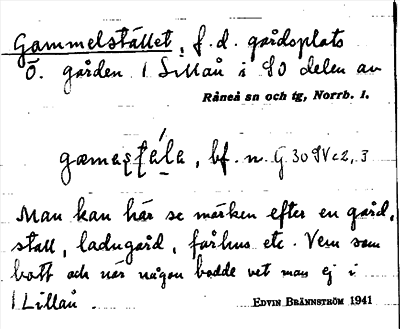 Gammelstället, f.d. gårdsplats
Ö. gården / Lillån i SO delen av
Råneå sn och tg, Norrb. l.
gœmaʂʈέla, bf. n. G. 30 IV c 2, 3
Man kan här se märken efter en gård,
stall, ladugård, fårhus etc. Vem som
bott och när någon bodde vet man ej i
/ Lillån.
EDVIN BRÄNNSTRÖM 1941